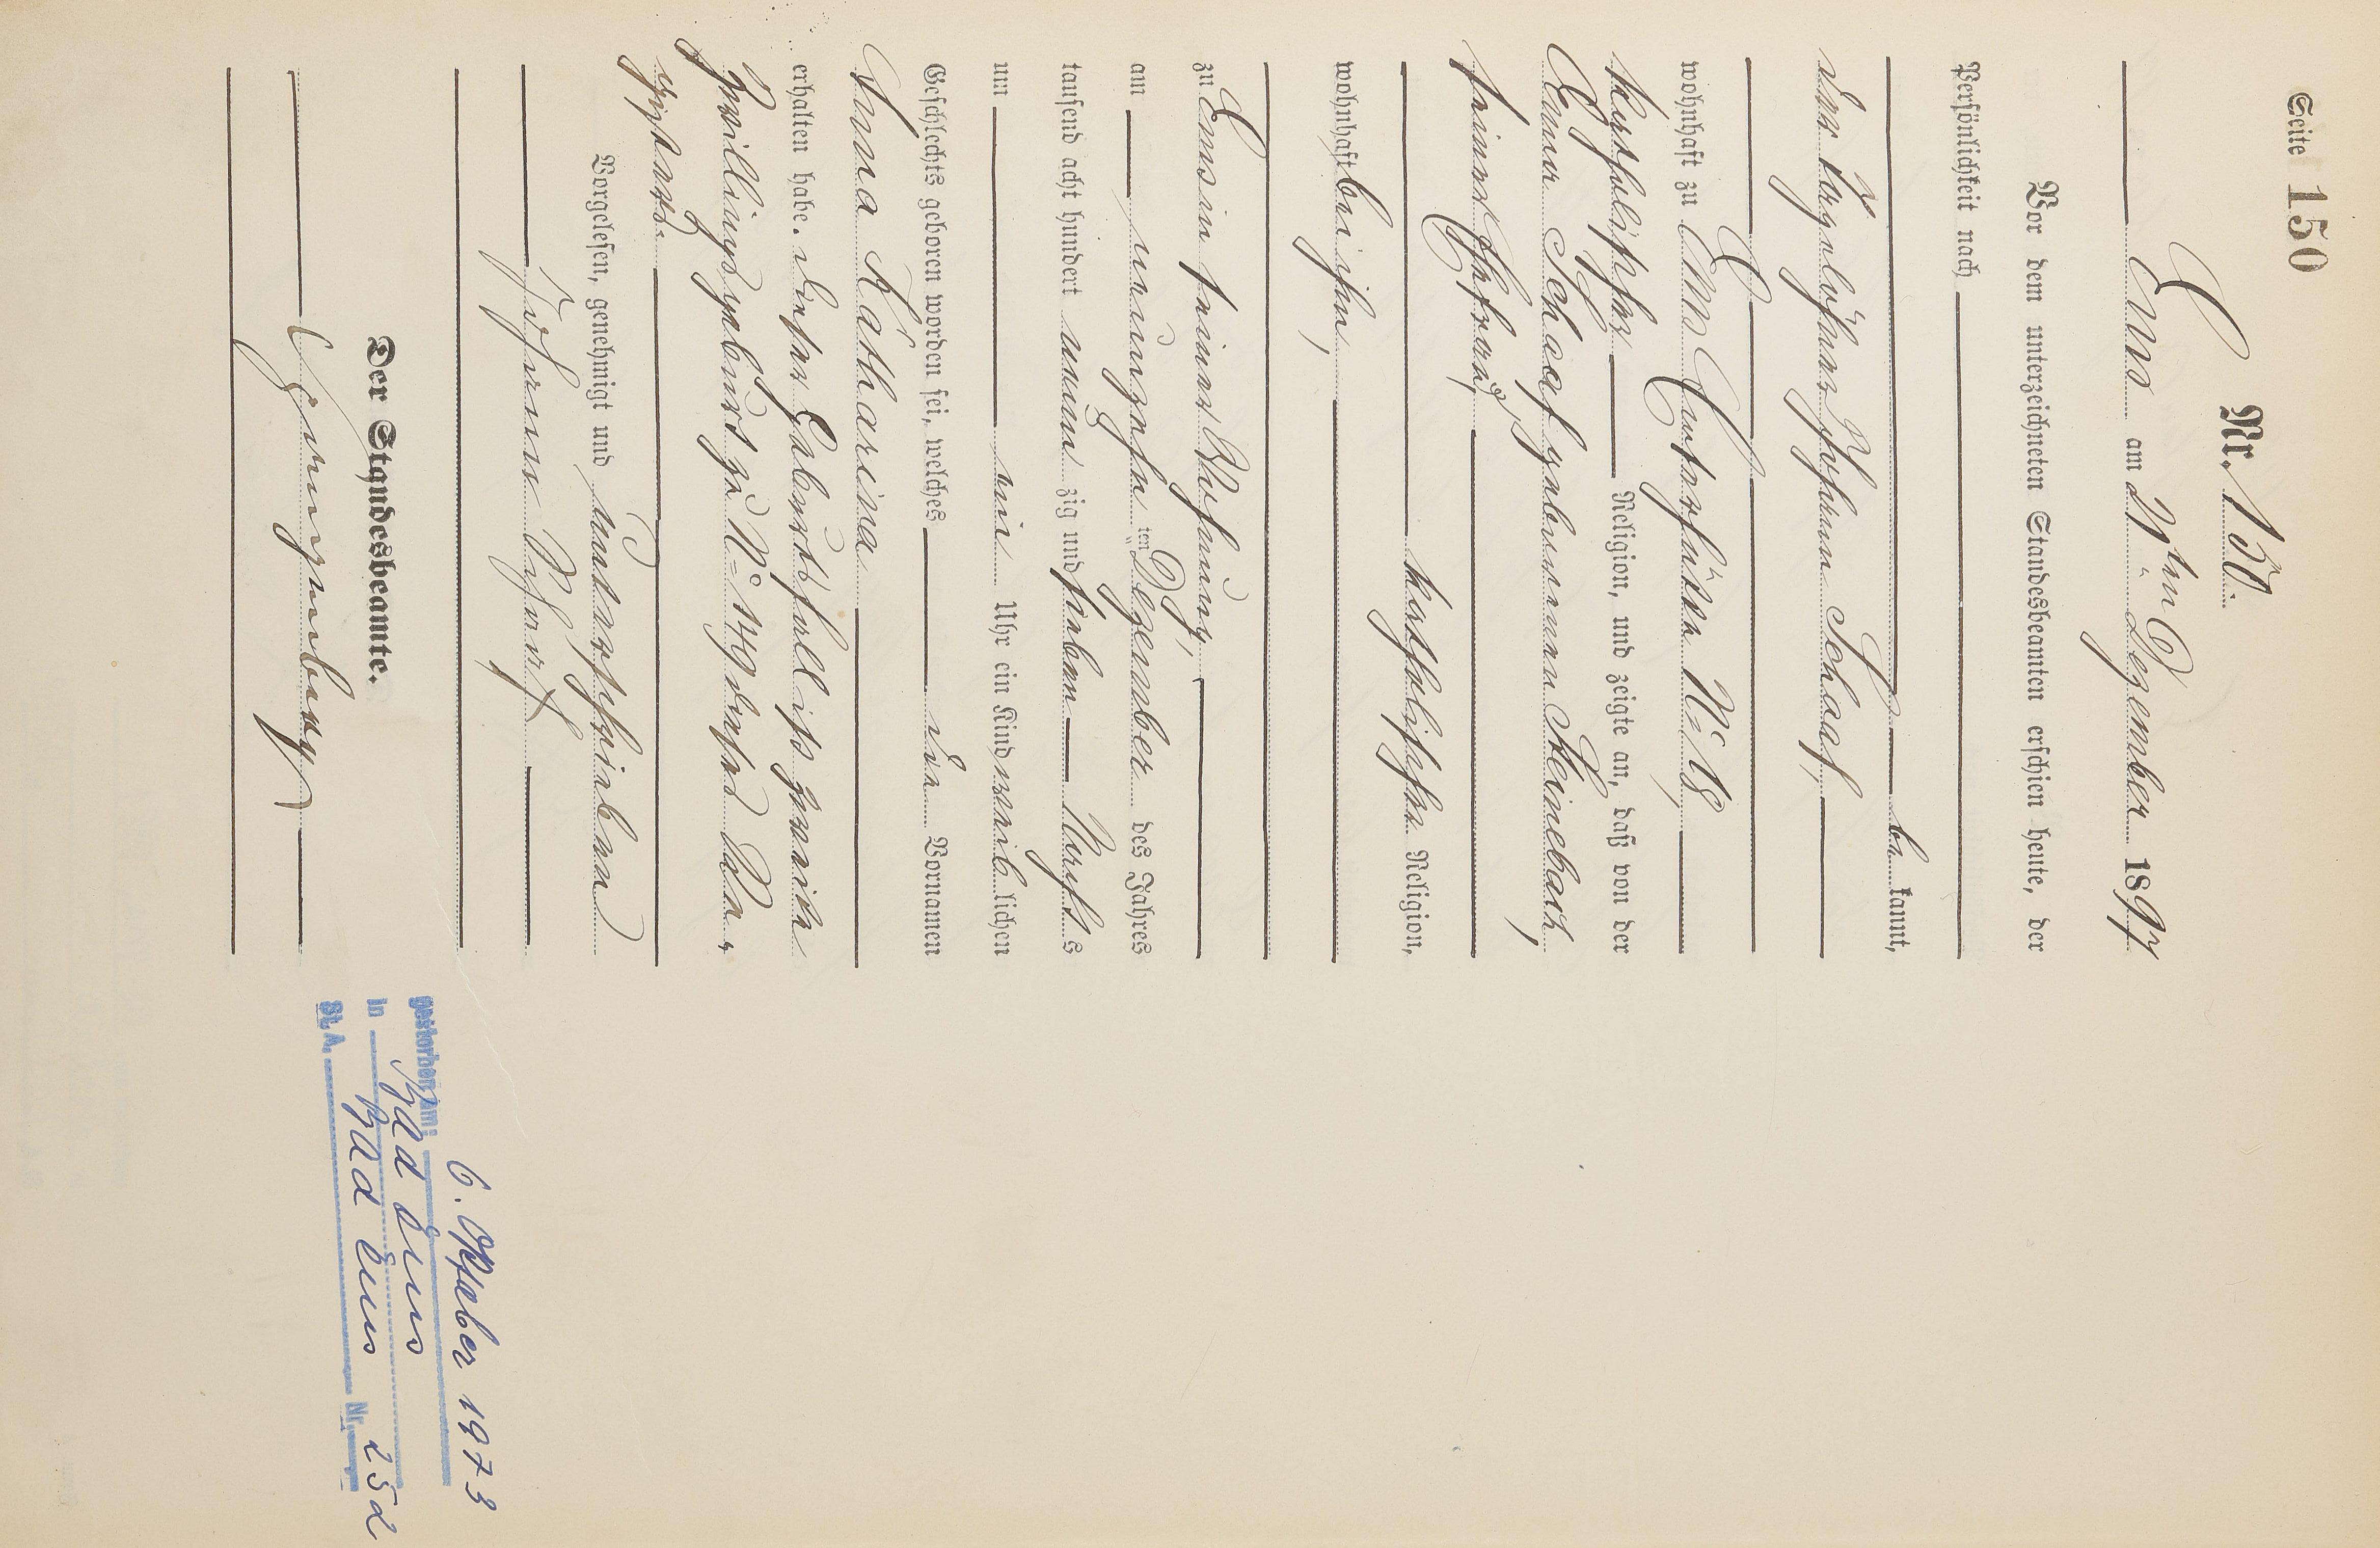 Seite 150
Nr. 150.
Ems am 21ten Dezember 1897
Vor dem unterzeichneten Standesbeamten erschien heute, der
Persönlichkeit nach
be kannt,
der Tagelöhner Johann Schaaf,
wohnhaft zu Ems
katholischer Religion, und zeigte an, daß von der
Emma Schaaf gebornen Steinebach,
seiner Ehefrau,
katholischer Religion,
wohnhaft bei ihm,
zu Ems in seiner Wohnung,
am neunzehn ten Dezember des Jahres
tausend acht hundert neun zig und sieben Nachts
um ein Uhr ein Kind weib lichen
Geschlechts geboren worden sei, welches die Vornamen
Anna Katharina
erhalten habe. Dieser Geburtsfall ist zweite
Zwillingsgeburt zu No 149 dieses Re-
gisters.
Vorgelesen, genehmigt und unterschrieben
Johann Schaaf
Der Standesbeamte.
gestorben am: 6. Oktober 1973
in Bad Ems
St. A. Bad Ems Nr. 252